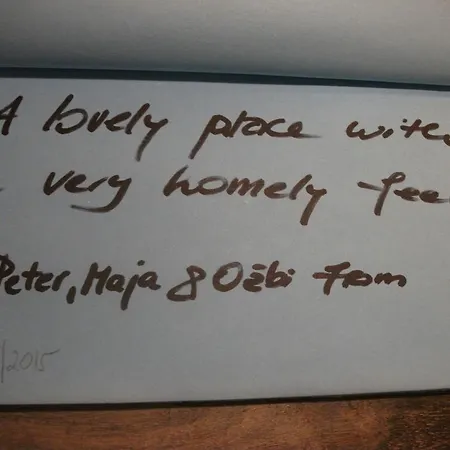 A lovely place with
a very homely feel
Peter, Maja & Ožbi from
/2015